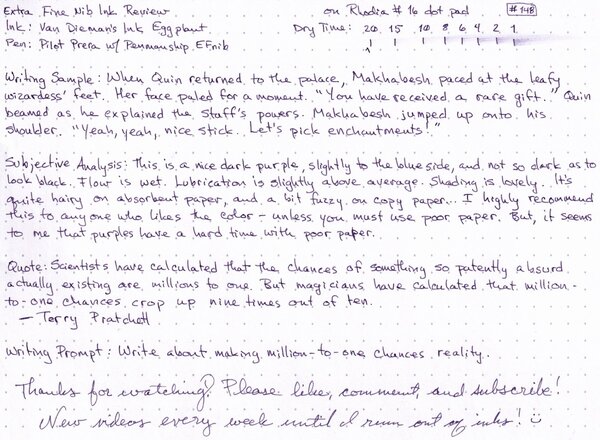 Extra Fine Nib Ink Review on Rhodia #16 dot pad #148
Ink: Van Dieman's Ink Eggplant Dry Time: 20 15 10 8 6 4 2 1
Pen: Pilot Prera w/ Penmanship EF nib
Writing Sample: When Quin returned to the palace, Makhabesh paced at the leafy
wizardess' feet. Her face paled for a moment. "You have received a rare gift." Quin
beamed as he explained the staff's powers. Makhabesh jumped up onto his
shoulder. "Yeah, yeah, nice stick. Let's pick enchantments!"
Subjective Analysis: This is a nice dark purple, slightly to the blue side, and not so dark as to
look black. Flow is wet. Lubrication is slightly above average. Shading is lovely. It's
quite hairy on absorbent paper, and a bit fuzzy on copy paper... I highly recommend
this to anyone who likes the color - unless you must use poor paper. But, it seems
to me that purples have a hard time with poor paper.
Quote: Scientists have calculated that the chances of something so patently absurd
actually existing are millions to one. But magicians have calculated that million-
to-one chances crop up nine times out of ten.
— Terry Pratchett
Writing Prompt: Write about making million-to-one chances reality.
Thanks for watching! Please like, comment, and subscribe!
New videos every week until I run out of inks! ☺